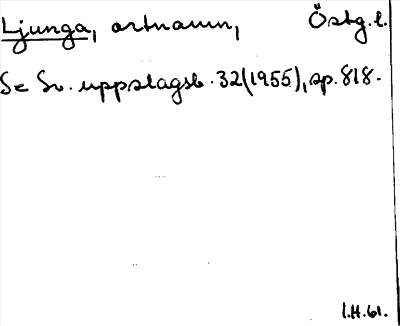 Ljunga, ortnamn, Östg.l.
Se Sv. uppslagsb. 32(1955), sp. 818.
I.H.61.